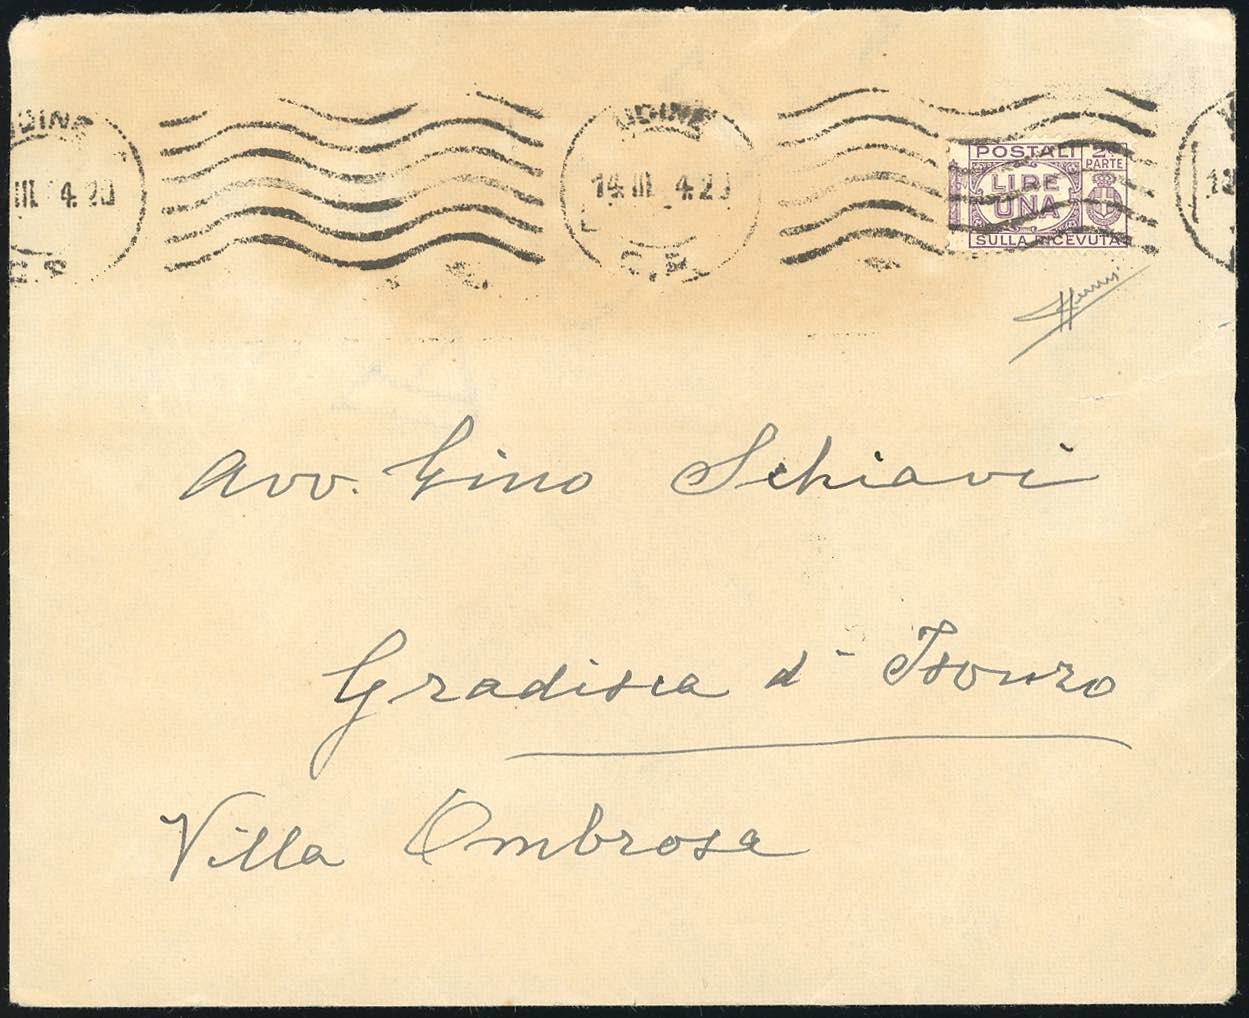 UDINE
III 4.20
UDINE
14.III 4.20
POSTALI 2ª PARTE
LIRE UNA
SULLA RICEVUTA
Avv. Gino Schiavi
Gradisca d' Isonzo
Villa Ombrosa